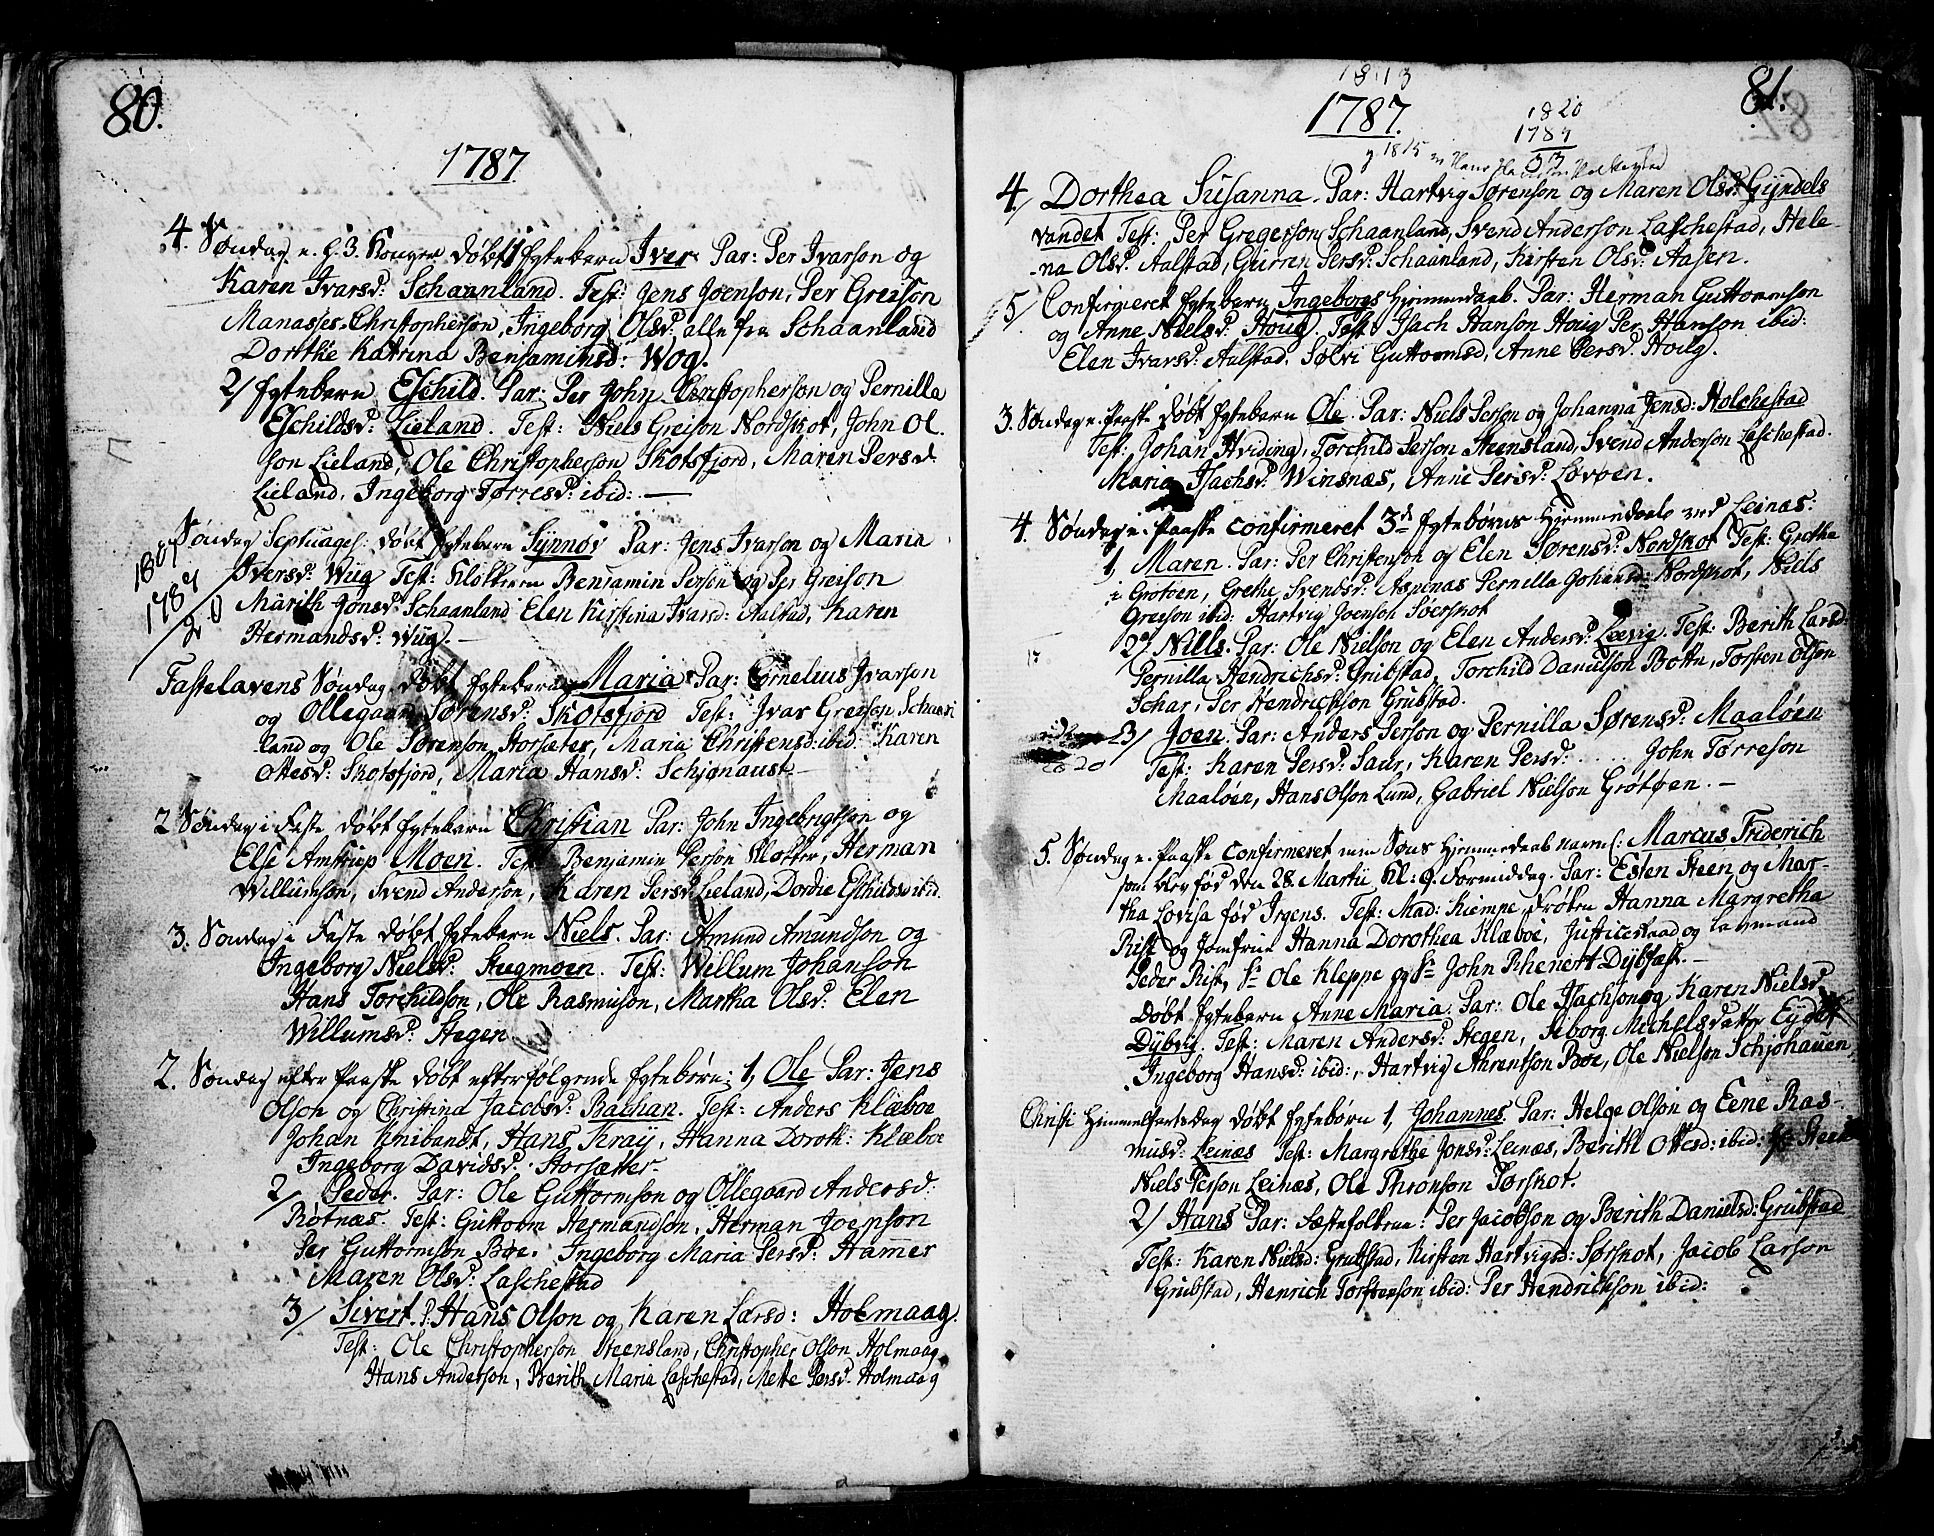 80.
1787
4. Søndag e. H. 3. Konger Døbt 1 Ægtebarn Iver Par: Per Ivarson og
Karen Ivarsd: Schaanland. Test: Jens Joenson, Per Greison
Manasses Christopherson, Ingeborg Olsd. alle fra Schaanland
Dorthe Katrina Benjaminsd: Wog.
2/ Ægtebarn Eschild. Par: Per John Christopherson og Pernilla
Eschildsd: Lieland. Test: Niels Greison Nordskot, John Ol-
son Lieland, Ole Christopherson Skotsfjord, Maren Persd.
Lieland, Ingeborg Torresd: ibid: —
Søndag Septuages: døbt Ægtebarn Synnøv Par: Jens Ivarson og Maria
Iversd: Wug Test: Klokkeren Benjamin Person og Per Greison
Marith Jonsd: Schaanland Elen Kirstina Ivarsd: Aalstad, Karen
Hermandsd: Wug. —
1807
1787
20
Fastelavens Søndag døbt Ægtebarn Maria Par: Cornelius Ivarson
og Ollegaard Sørensd: Skotsfjord Test: Ivar Greison Schaan
land og Ole Sørenson Storsæter, Maria Christensd: ibid: Karen
Ottesd: Skotsfjord, Maria Hansd: Schjønaust —
2 Søndag i Faste døbt Ægtebarn Christian Par: John Ingebrigtson og
Else Amstrup Moen. Test: Benjamin Person Klokker, Herman
Willumson, Svend Anderson, Karen Persd: Lieland, Dordie Eschildsd: ibid.
3. Søndag i Faste døbt Ægtebarn Niels. Par: Amund Amundson og
Ingeborg Nielsd: Stugmoen. Test: Willum Johanson
Hans Torchildson, Ole Rasmuson, Martha Olsd: Elen
Willumsd: Stegen
2. Søndag efter Paaske døbt efterfølgende Ægtebørn: 1, Ole Par: Jens
Olson og Christina Jacobsd: Bachan. Test: Anders Klæboe
Johan Knibandt, Hans Kraÿ, Hanna Doroth: Klæboe
Ingeborg Davidsd: Storsætter —
2/ Peder. Par: Ole Guttormson og Ollegaard Andersd:
Røtnæs. Test: Guttorm Hermandson, Herman Joenson
Per Guttormson Bøe. Ingeborg Maria Persd: Hammer
Maren Olsd: Laschestad
3/ Sivert. P: Hans Olson og Karen Larsd: Holmaag.
Test: Ole Christopherson Steensland, Christopher Olson Holmaag
Hans Anderson, Berith Maria Laschestad, Mette Persd. Holmaag
81.
1813
1787.
1820
1787
33
4/ Dorthea Susanna. Par: Hartvig Sørenson og Maren Olsd: Gyndels
vandet Test: Per Gregerson Schaanland, Svend Anderson Laschestad, Hele-
na Olsd. Aalstad, Gurren Persd: Schaanland, Kirsten Olsd: Aasen.
5/ Confirmeret Ægtebarn Ingeborgs Hjemmedaab. Par: Herman Guttormson
og Anne Nielsd. Houg. Test: Isach Hanson Houg Per Hanson ibid:
Elen Ivarsd: Aalstad, Sølvi Guttormsd, Anne Persd. Houg.
3. Søndag e. Paaske døbt Ægtebarn Ole. Par: Niels Person og Johanna Jensd: Holchestad
Test: Johan Hviding, Torchild Person Steensland, Svend Anderson Laschestad.
Maria Isachsd: Winsnæs, Anne Persd: Løvøen.
4. Søndag e. Paaske confirmeret 3de Ægtebørns Hjemmedaab ved Leinæs:
1, Maren. Par: Per Christenson og Elen Sørensd: Nordskot Test: Grethe
i Grotøen, Grethe Svendsd: Aspenæs Pernilla Johansd: Nordskot, Niels
Greeson ibid: Hartvig Joenson Sørskot
2, Nills. Par: Ole Nielson og Elen Andersd: Leevig. Test: Berith Larsd:
Pernilla Hendrichsd: Grubstad, Torchild Danielson Botn, Torsten Olson
Schar, Per Hendrichson Grubstad.
3/ Joen. Par: Anders Person og Pernilla Sørensd: Maaløen
Test: Karen Persd: Saur, Karen Persd: ..... John Torreson
Maaløen, Hans Olson Lund, Gabriel Nielson Grøtøen. —
5. Søndag e. Paaske confirmeret min Søns Hjemmedaab navnl: Marcus Friderich
som blev fød den 28. Martii Kl: 9. Formiddag. Par: Esten Steen og Mar-
tha Lovisa fød Irgens. Test: Mad: Kiempe, Frøken Hanna Margretha
Rist og Jomfrue Hanna Dorothea Klæboe, Justicesraad og Laymand
Peder Rist, Sr Ole Kleppe og Sr John Rhenert Dybfæst. —
Døbt Ægtebarn Anne Maria. Par: Ole Isachson og Karen Nielsd
Dybvig. Test: Maren Andersd: Stegen, Siborg Michelsdatter Eyde
Ingeborg Hansd: ibid:, Hartvig Ahrentson Bøe, Ole Nielson Schjohaven
Christi Himmelfartsdag døbt Ægtebørn 1, Johannes. Par: Helge Olson og Eene Ras-
musd: Leinæs Test: Margrethe Jonsd: Leinæs, Berith Ottesd: ibid:
Niels Person Leinæs, Ole Thronson Tørskot.
2/ Hans Par: Fæstefolkene: Per Jacobson og Berith Danielsd: Grubstad
Test: Karen Nielsd: Grubstad, Kirsten Hartvigsd: Sørskot, Jacob Larson
Grubstad, Henrich Torstenson ibid: Per Hendrickson ibid: